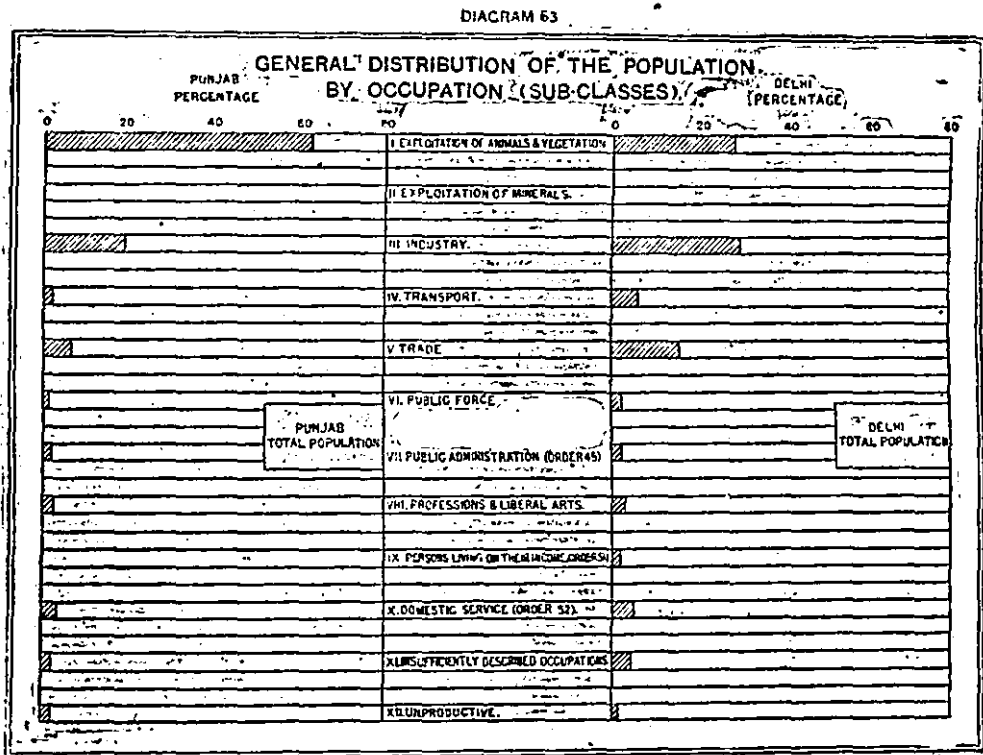 DIAGRAM 63
GENERAL DISTRIBUTION OF THE POPULATION
BY OCCUPATION (SUB-CLASSES)
PUNJAB
PERCENTAGE
DELHI
(PERCENTAGE)
0 20 40 60 80
0 20 40 60 80
I EXPLOITATION OF ANIMALS & VEGETATION
II EXPLOITATION OF MINERALS.
III INDUSTRY.
IV. TRANSPORT.
V TRADE
VI. PUBLIC FORCE
PUNJAB
TOTAL POPULATION
DELHI
TOTAL POPULATION
VII PUBLIC ADMINISTRATION (ORDER 45)
VIII. PROFESSIONS & LIBERAL ARTS.
IX PERSONS LIVING ON THEIR INCOME, ORDER 51
X. DOMESTIC SERVICE (ORDER 52).
XI. INSUFFICIENTLY DESCRIBED OCCUPATIONS
XII. UNPRODUCTIVE.